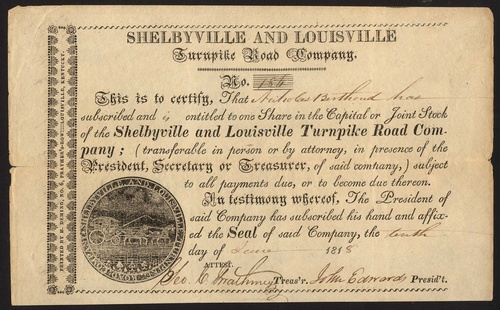 SHELBYVILLE AND LOUISVILLE
Turnpike Road Company.
No. 184
This is to certify, That Nicholas Berthoud has
subscribed and is entitled to one Share in the Capital or Joint Stock
of the Shelbyville and Louisville Turnpike Road Com-
pany; (transferable in person or by attorney, in presence of the
President, Secretary or Treasurer, of said company,) subject
to all payments due, or to become due thereon.
In testimony whereof, The President of
said Company has subscribed his hand and affix-
ed the Seal of said Company, the tenth
day of June 1818
ATTEST.
Geo. C. Treas'r. John Edwards Presid't.
SHELBYVILLE AND LOUISVILLE